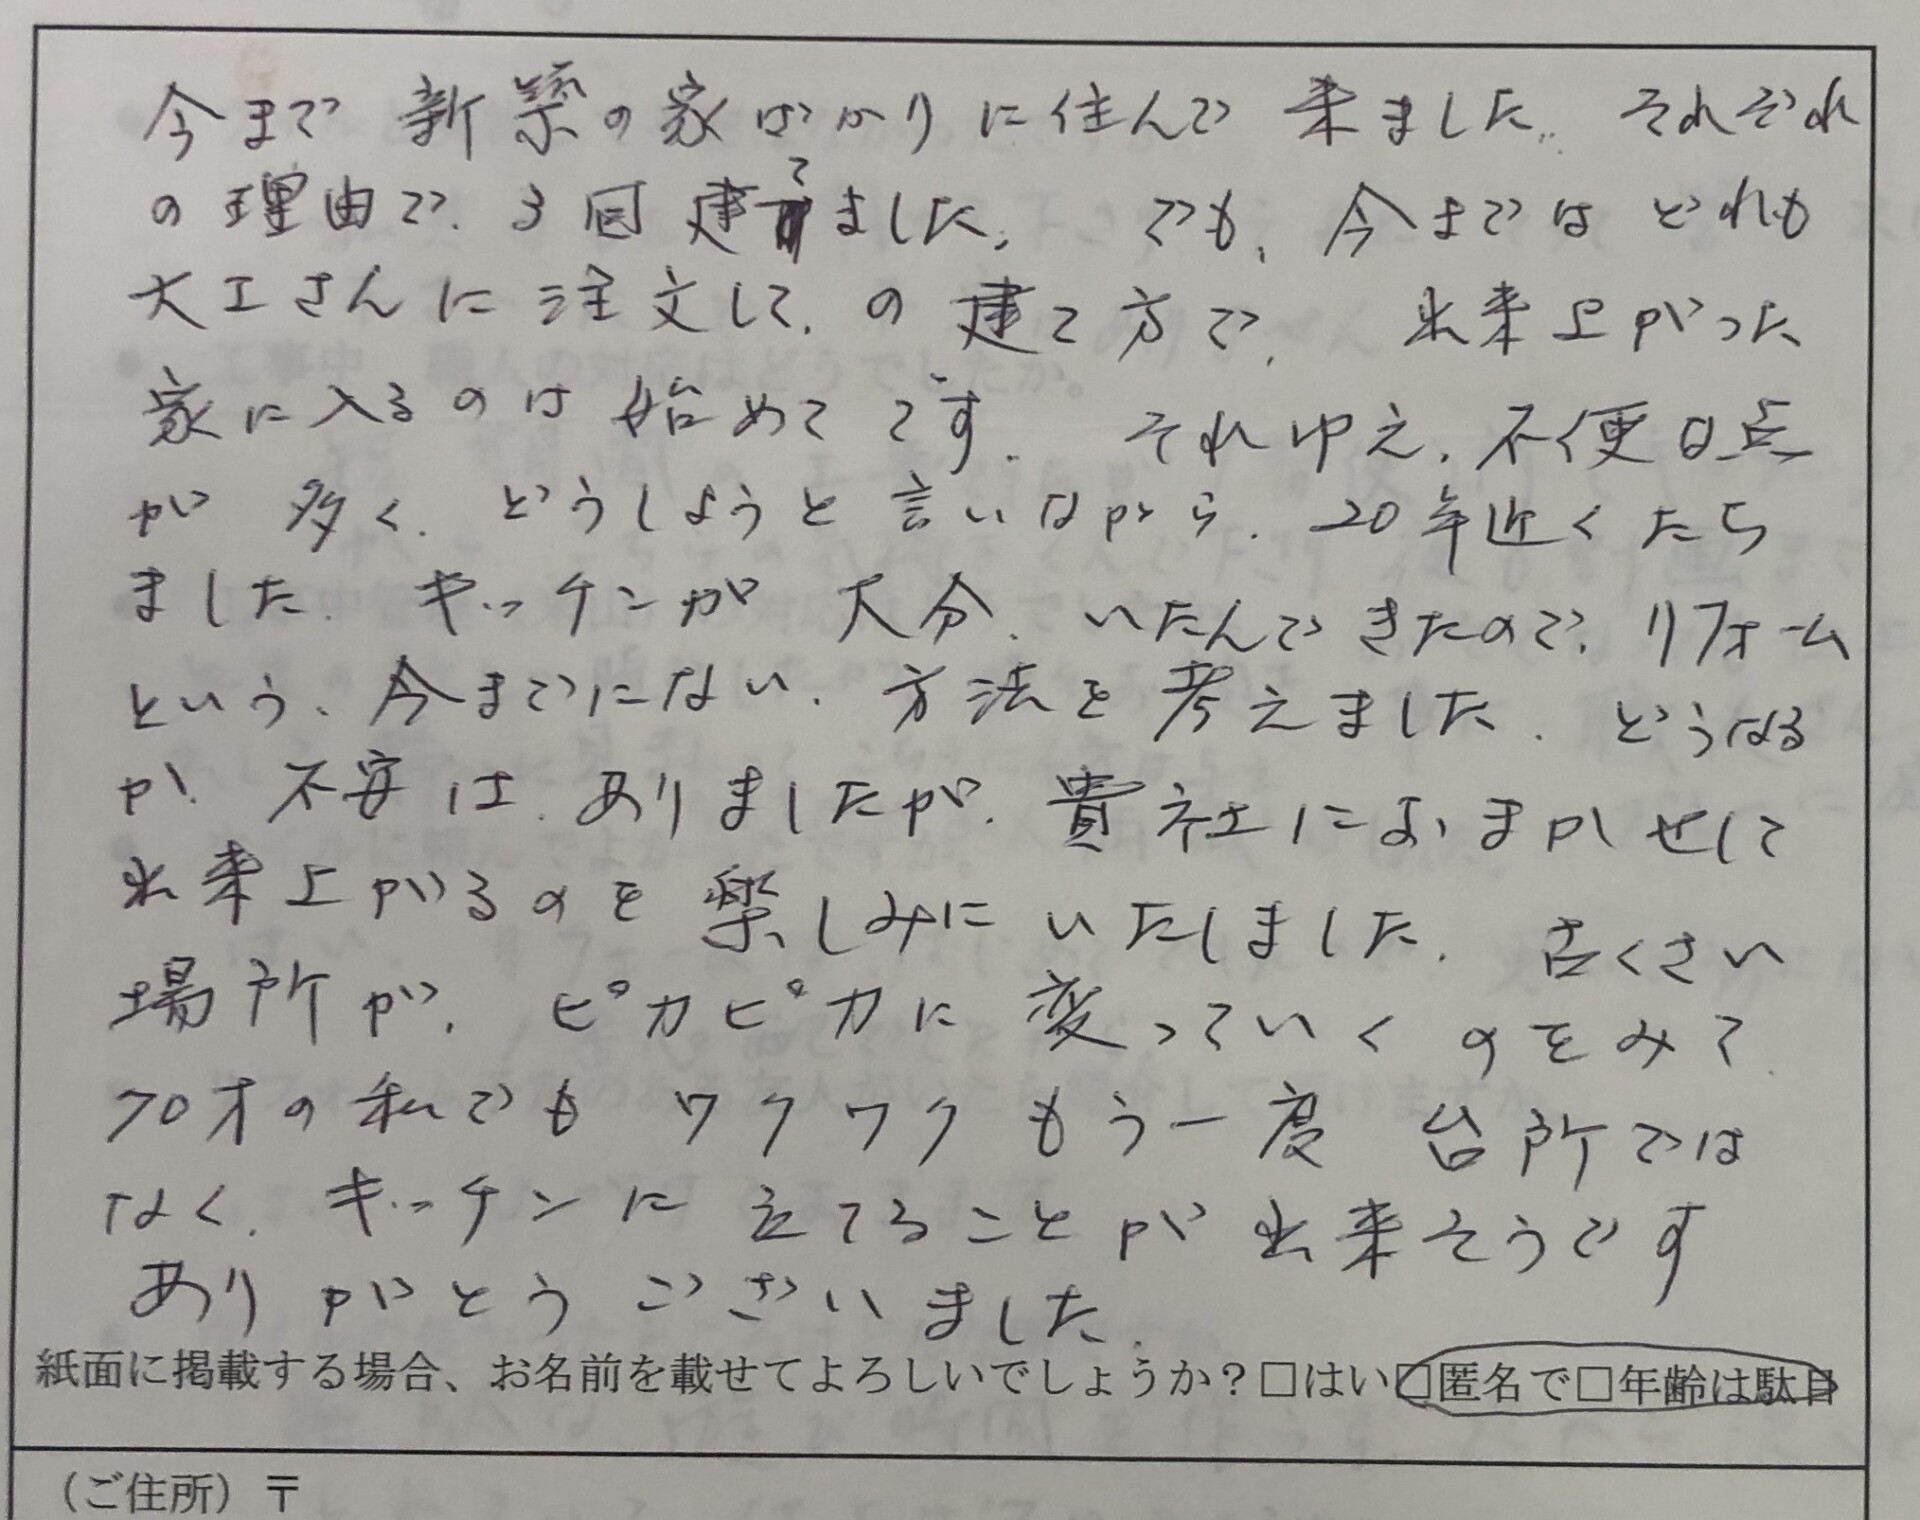 今まで新築の家ばかりに住んで来ました。それぞれ
の理由で、3回建てました。でも、今まではどれも
大工さんに注文して、の建て方で、出来上がった
家に入るのは始めてです。それゆえ、不便な点
が多く、どうしようと言いながら、20年近くたち
ました。キッチンが大分、いたんできたので、リフォーム
という、今までにない、方法を考えました。どうなる
か、不安は、ありましたが、貴社におまかせして
出来上がるのを楽しみにいたしました。古くさい
場所が、ピカピカに変っていくのをみて、
70才の私でもワクワクもう一度台所では
なく、キッチンに立てることが出来そうです
ありがとうございました。
紙面に掲載する場合、お名前を載せてよろしいでしょうか？□はい□匿名で□年齢は駄目
（ご住所）〒